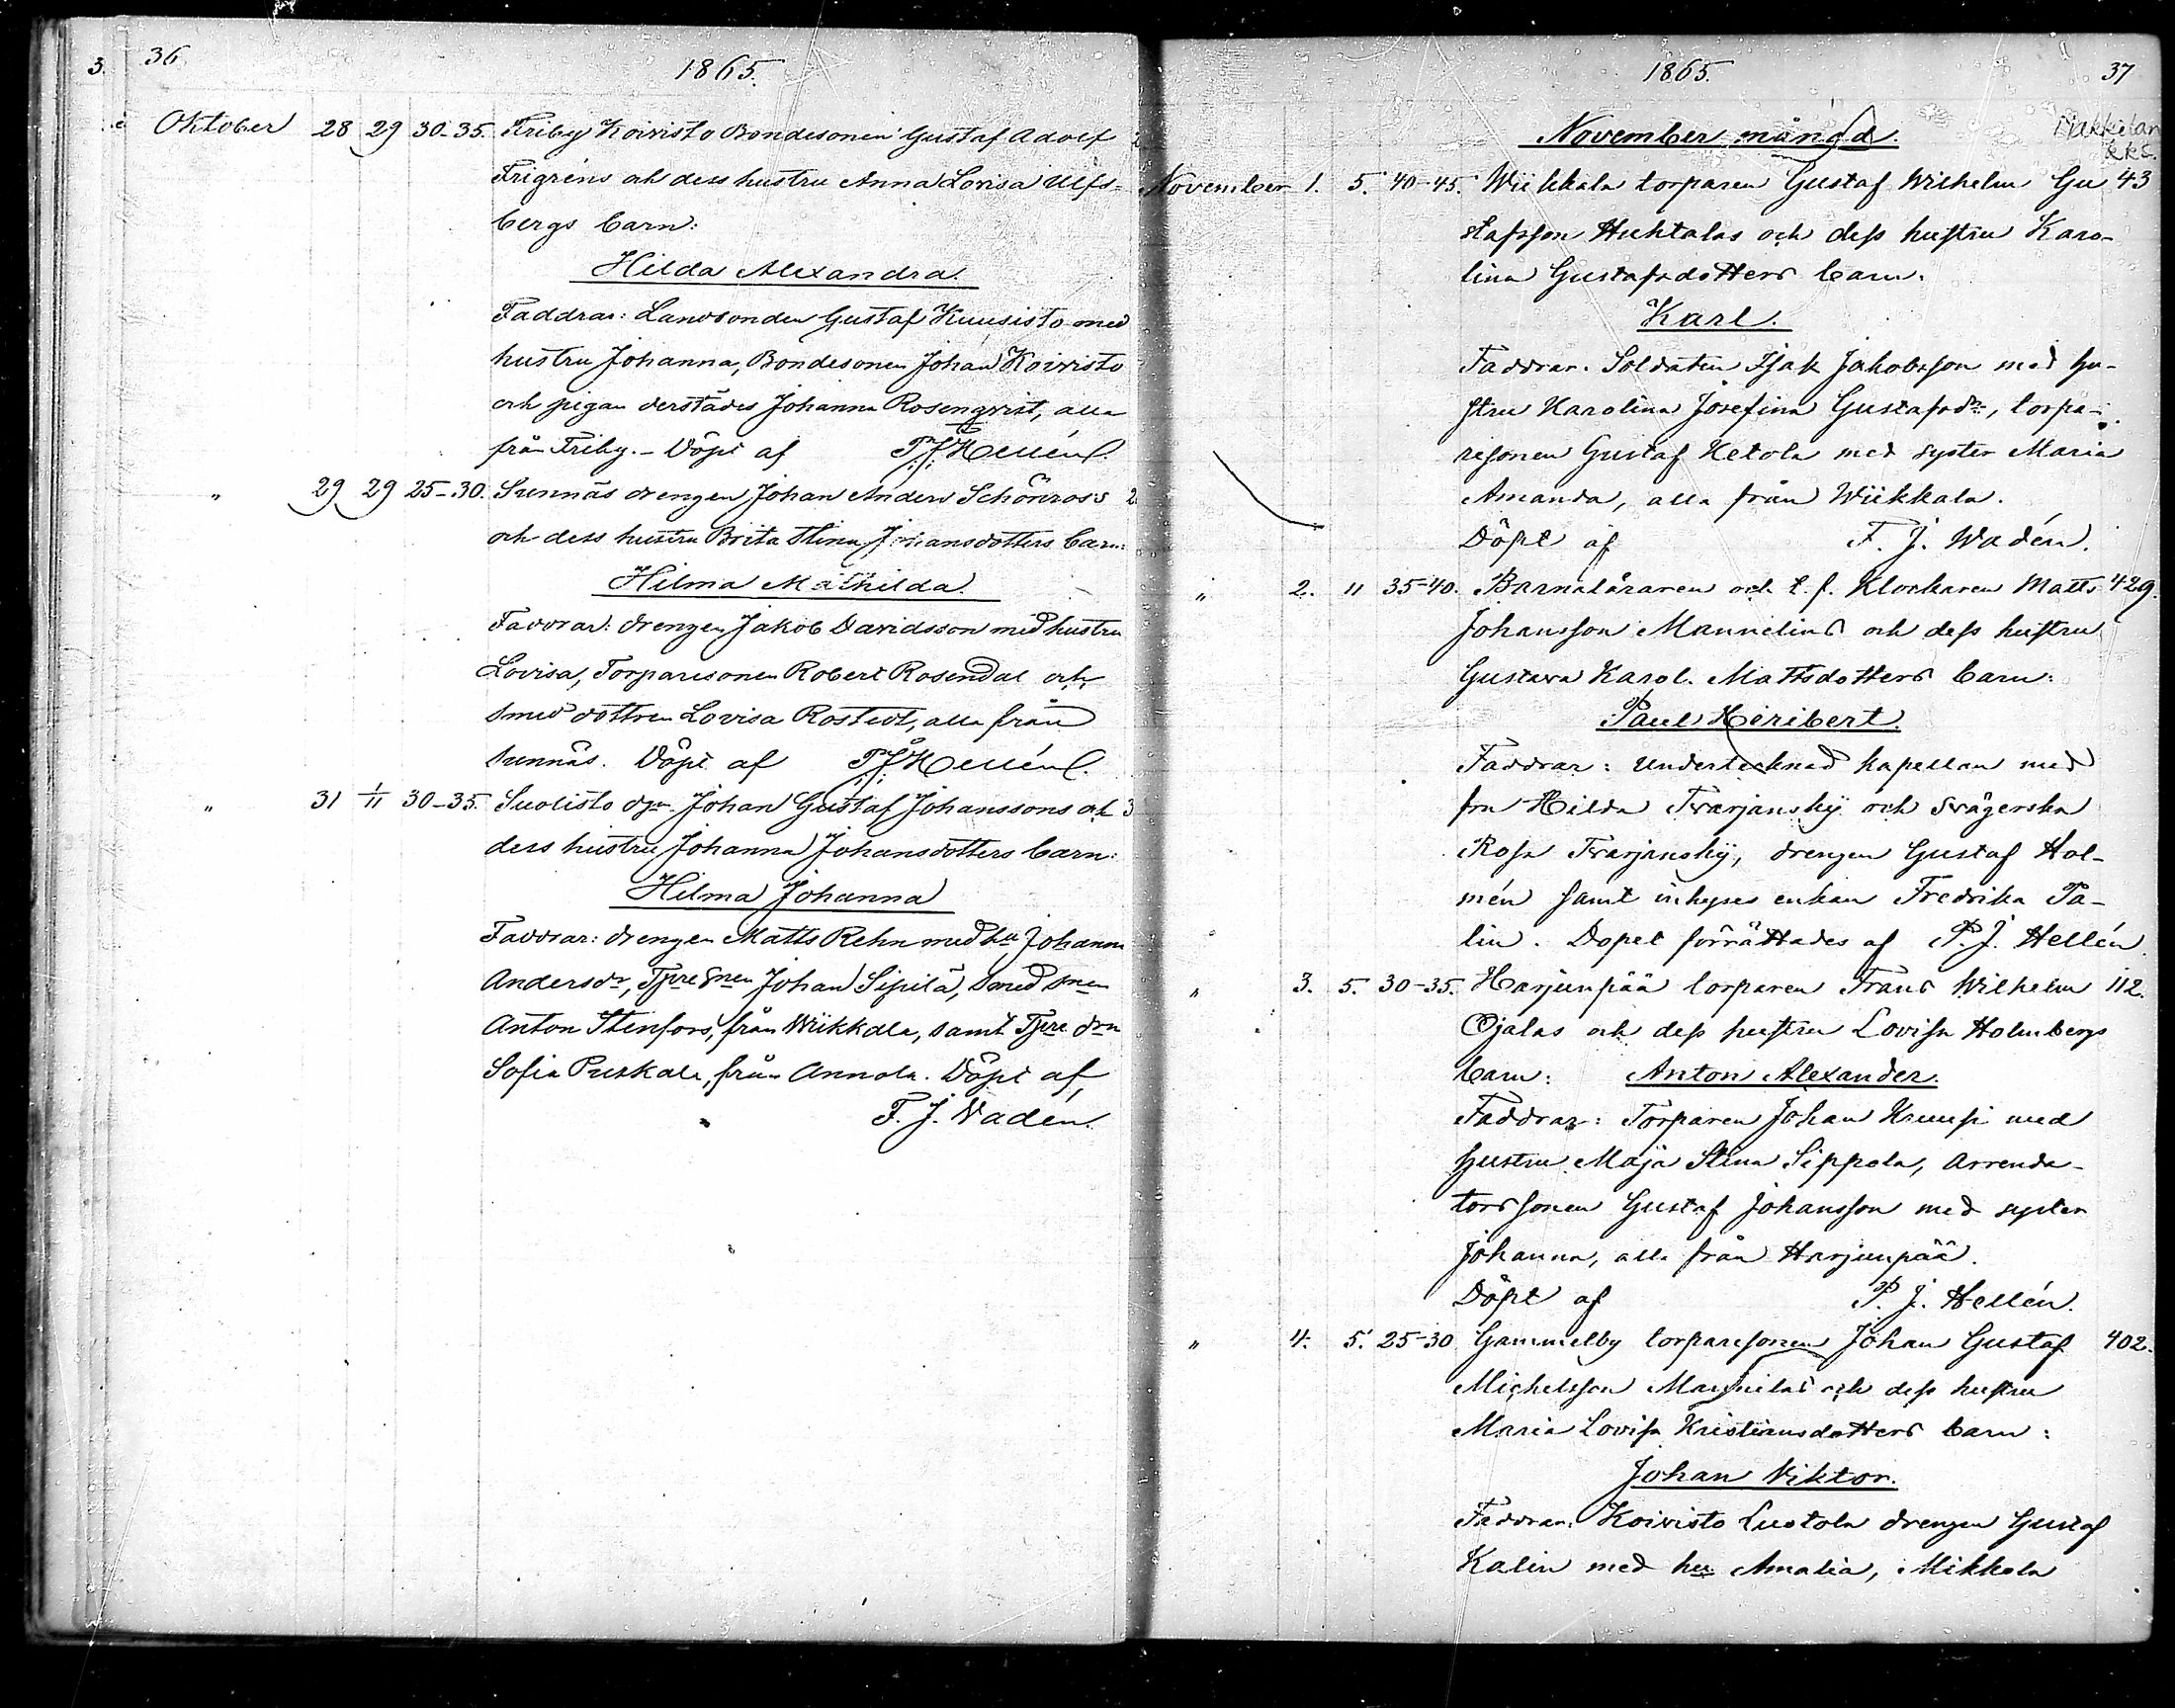 36
1865.
Oktober 28 29 30-35. Friby Koivisto Bondesonen Gustaf Adolf
Frigréns och dess hustru Anna Lovisa Ulfs=
bergs barn:
Hilda Alexandra.
Faddrar: Landbonden Gustaf Kuusisto med
hustru Johanna, Bondesonen Johan Koivisto
och pigan derstädes Johanna Rosenqvist, alla
från Friby. - Döpt af P. J. Hellén.
" 29 29 25-30. Sunnäs drengen Johan Anders Schönross
och dess hustru Brita Stina Johansdotters barn:
Hilma Mathilda.
Faddrar: drengen Jakob Davidsson med hustru
Lovisa, Torparesonen Robert Rosendal och
smed dottren Lovisa Rostedt, alla från
Sunnäs. Döpt af P. J. Hellén.
" 31 1/11 30-35. Suolisto dgn. Johan Gustaf Johanssons och
dess hustru Johanna Johansdotters barn:
Hilma Johanna
Faddrar: drengen Matts Rehn med hu Johanna
Andersdr, Tpresnen Johan Sipilä, smed snen
Anton Stenfors, från Wiikkala, samt Tpre drn
Sofia Puskala, från Annola. Döpt af
F. J. Vadén.
1865.
37
November månad.
November 1. 5. 40-45. Wiikkala torparen Gustaf Wilhelm Gu 43
stafsson Huhtalas och dess hustru Karo-
lina Gustafsdotters barn:
Karl.
Faddrar. Soldaten Isak Jakobsson med hu-
stru Karolina Josefina Gustafsdr, torpa-
resonen Gustaf Ketola med syster Maria
Amanda, alla från Wiikkala.
Döpt af F. J. Wadén.
" 2. 11 35-40. Barnaläraren och t. f. Klockaren Matts 429.
Johansson Mannelins och dess hustru
Gustava Karol. Mattsdotters barn:
Paul Heribert.
Faddrar: Undertecknad kapellan med
fru Hilda Tvarjansky och svägerska
Rosa Tvarjansky, drengen Gustaf Hol-
mén samt inhyses enkan Fredrika Pa-
lin. Dopet förrättades af P. J. Hellén.
" 3. 5. 30-35. Harjunpää torparen Frans Wilhelm 112.
Ojalas och dess hustru Lovisa Holmbergs
barn: Anton Alexander.
Faddrar: Torparen Johan Kuusi med
hustru Maja Stina Sippola, Arrenda-
torssonen Gustaf Johansson med syster
Johanna, alla från Harjunpää.
Döpt af P. J. Hellén.
" 4. 5. 25-30 Gammelby torparesonen Johan Gustaf 402.
Michelsson Mannilas och dess hustru
Maria Lovisa Kristiansdotters barn:
Johan Viktor.
Faddrar: Koivisto Luotola drengen Gustaf
Kalin med hu Amalia, Mikkola